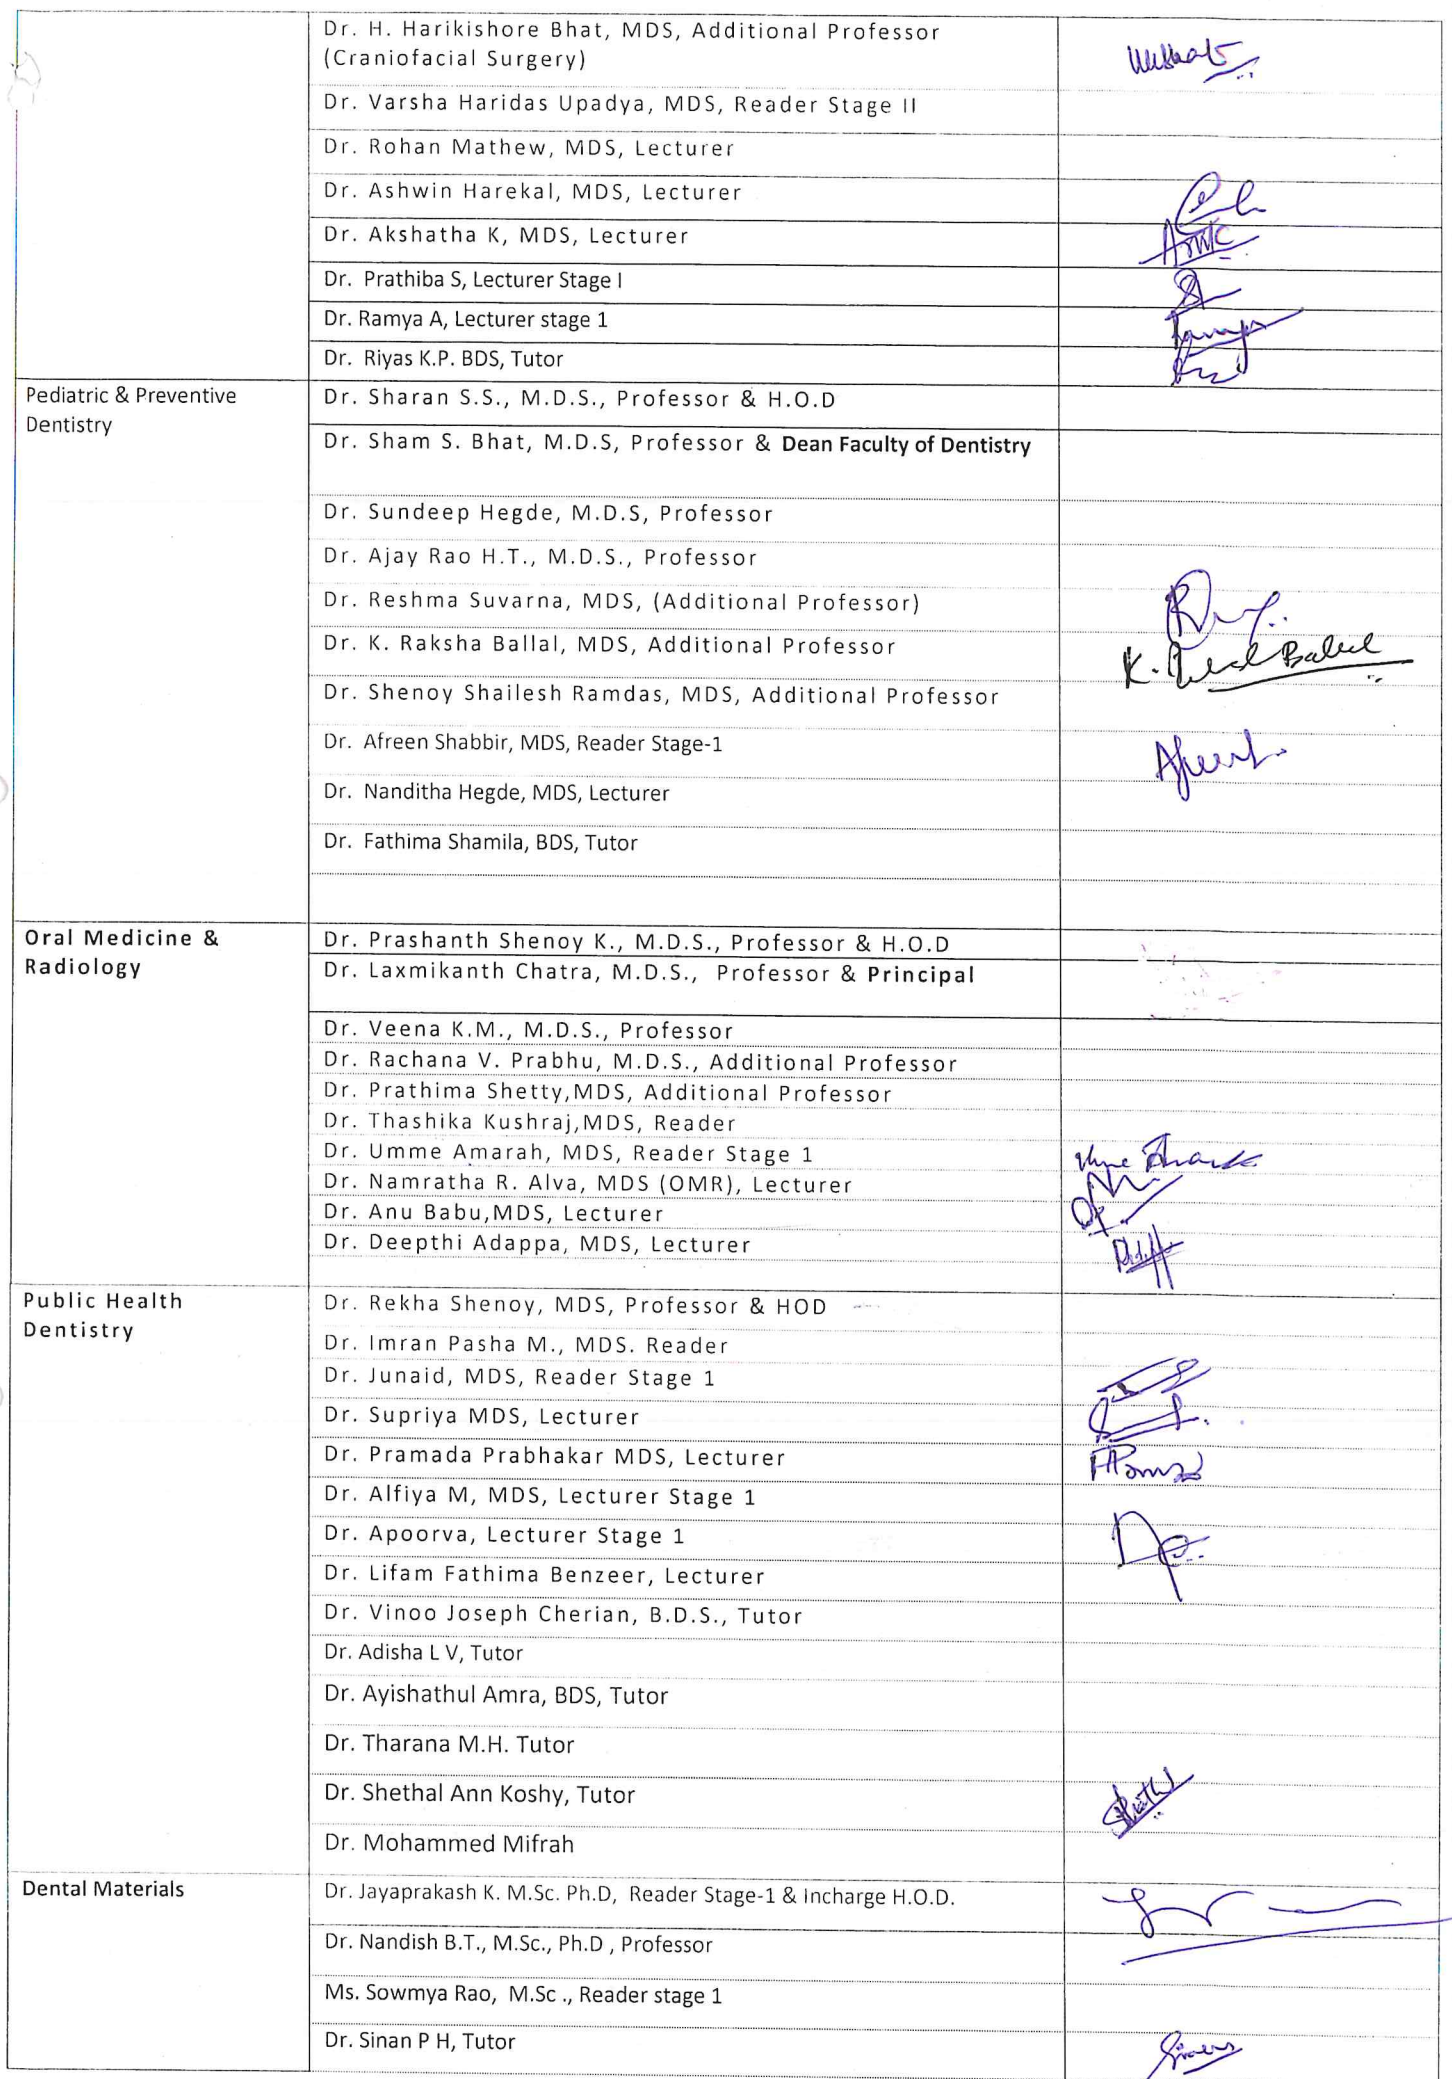 Dr. H. Harikishore Bhat, MDS, Additional Professor
(Craniofacial Surgery)
Dr. Varsha Haridas Upadya, MDS, Reader Stage II
Dr. Rohan Mathew, MDS, Lecturer
Dr. Ashwin Harekal, MDS, Lecturer
Dr. Akshatha K, MDS, Lecturer
Dr. Prathiba S, Lecturer Stage I
Dr. Ramya A, Lecturer stage 1
Dr. Riyas K.P. BDS, Tutor
Pediatric & Preventive
Dentistry
Dr. Sharan S.S., M.D.S., Professor & H.O.D
Dr. Sham S. Bhat, M.D.S, Professor & Dean Faculty of Dentistry
Dr. Sundeep Hegde, M.D.S, Professor
Dr. Ajay Rao H.T., M.D.S., Professor
Dr. Reshma Suvarna, MDS, (Additional Professor)
Dr. K. Raksha Ballal, MDS, Additional Professor
Dr. Shenoy Shailesh Ramdas, MDS, Additional Professor
Dr. Afreen Shabbir, MDS, Reader Stage-1
Dr. Nanditha Hegde, MDS, Lecturer
Dr. Fathima Shamila, BDS, Tutor
Oral Medicine &
Radiology
Dr. Prashanth Shenoy K., M.D.S., Professor & H.O.D
Dr. Laxmikanth Chatra, M.D.S., Professor & Principal
Dr. Veena K.M., M.D.S., Professor
Dr. Rachana V. Prabhu, M.D.S., Additional Professor
Dr. Prathima Shetty,MDS, Additional Professor
Dr. Thashika Kushraj,MDS, Reader
Dr. Umme Amarah, MDS, Reader Stage 1
Dr. Namratha R. Alva, MDS (OMR), Lecturer
Dr. Anu Babu,MDS, Lecturer
Dr. Deepthi Adappa, MDS, Lecturer
Public Health
Dentistry
Dr. Rekha Shenoy, MDS, Professor & HOD
Dr. Imran Pasha M., MDS. Reader
Dr. Junaid, MDS, Reader Stage 1
Dr. Supriya MDS, Lecturer
Dr. Pramada Prabhakar MDS, Lecturer
Dr. Alfiya M, MDS, Lecturer Stage 1
Dr. Apoorva, Lecturer Stage 1
Dr. Lifam Fathima Benzeer, Lecturer
Dr. Vinoo Joseph Cherian, B.D.S., Tutor
Dr. Adisha L V, Tutor
Dr. Ayishathul Amra, BDS, Tutor
Dr. Tharana M.H. Tutor
Dr. Shethal Ann Koshy, Tutor
Dr. Mohammed Mifrah
Dental Materials
Dr. Jayaprakash K. M.Sc. Ph.D, Reader Stage-1 & Incharge H.O.D.
Dr. Nandish B.T., M.Sc., Ph.D , Professor
Ms. Sowmya Rao, M.Sc ., Reader stage 1
Dr. Sinan P H, Tutor